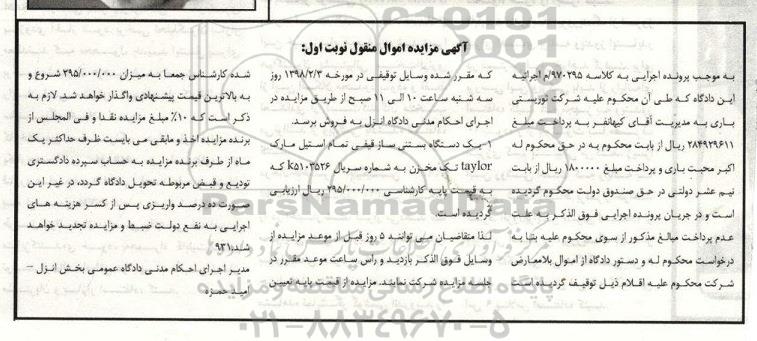 آگهی مزایده اموال منقول نوبت اول:
به موجب پرونده اجرایی به کلاسه ۹۷۰۲۹۵/م اجرائیه
این دادگاه که طی آن محکوم علیه شرکت توریستی
باری به مدیریت آقای کیهانفر به پرداخت مبلغ
۲۸۴۹۲۹۶۱۱ ریال از بابت محکوم به در حق محکوم له
اکبر محبت باری و پرداخت مبلغ ۱۸۰۰۰۰۰ ریال از بابت
نیم عشر دولتی در حق صندوق دولت محکوم گردیده
است و در جریان پرونده اجرایی فوق الذکر به علت
عدم پرداخت مبالغ مذکور از سوی محکوم علیه بنا به
درخواست محکوم له و دستور دادگاه از اموال بلامعارض
شرکت محکوم علیه اقلام ذیل توقیف گردیده است
که مقرر شده وسایل توقیفی در مورخه ۱۳۹۸/۲/۳ روز
سه شنبه ساعت ۱۰ الی ۱۱ صبح از طریق مزایده در
اجرای احکام مدنی دادگاه انزل به فروش برسد.
۱-یک دستگاه بستنی ساز قیفی تمام استیل مارک
taylor تک مخزن به شماره سریال k5103526 که
به قیمت پایه کارشناسی ۲۹۵/۰۰۰/۰۰۰ ریال ارزیابی
گردیده است.
لذا متقاضیان می توانند ۵ روز قبل از موعد مزایده از
وسایل فوق الذکر بازدید و راس ساعت موعد مقرر در
جلسه مزایده شرکت نمایند. مزایده از قیمت پایه تعیین
شده کارشناس جمعا به میزان ۲۹۵/۰۰۰/۰۰۰ شروع و
به بالاترین قیمت پیشنهادی واگذار خواهد شد. لازم به
ذکر است که ۱۰٪ مبلغ مزایده نقدا و فی المجلس از
برنده مزایده اخذ و مابقی می بایست ظرف حداکثر یک
ماه از طرف برنده مزایده به حساب سپرده دادگستری
تودیع و قبض مربوطه تحویل دادگاه گردد، در غیر این
صورت ده درصد واریزی پس از کسر هزینه های
اجرایی به نفع دولت ضبط و مزایده تجدید خواهد
شد.۹۳۱
مدیر اجرای احکام مدنی دادگاه عمومی بخش انزل –
امید حمزه
ParsNamadData
پایگاه اطلاع رسانی مناقصه و مزایده
۰۲۱-۸۸۳۴۹۶۷۰-۵